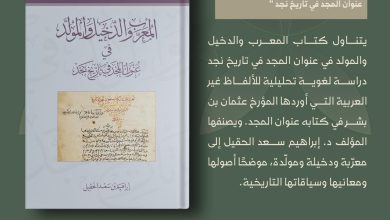 عنوان المجد في تاريخ نجد "
يتناول كتاب المعرب والدخيل
والمولد في عنوان المجد في تاريخ نجد
دراسة لغوية تحليلية للألفاظ غير
العربية التي أوردها المؤرخ عثمان بن
بشر في كتابه عنوان المجد. ويصنفها
المؤلف د. إبراهيم سعد الحقيل إلى
معرّبة ودخيلة ومولّدة، موضحًا أصولها
ومعانيها وسياقاتها التاريخية.
المعرب والدخيل والمولد
في
عنوان المجد في تاريخ نجد
إبراهيم بن سعد الحقيل